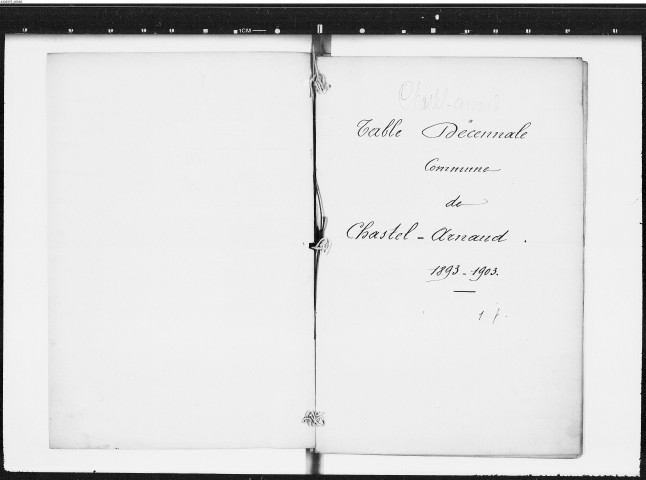 Chastel-Arnaud
Table Décennale
Commune
de
Chastel-Arnaud.
1893-1903.
1 f.
1CM